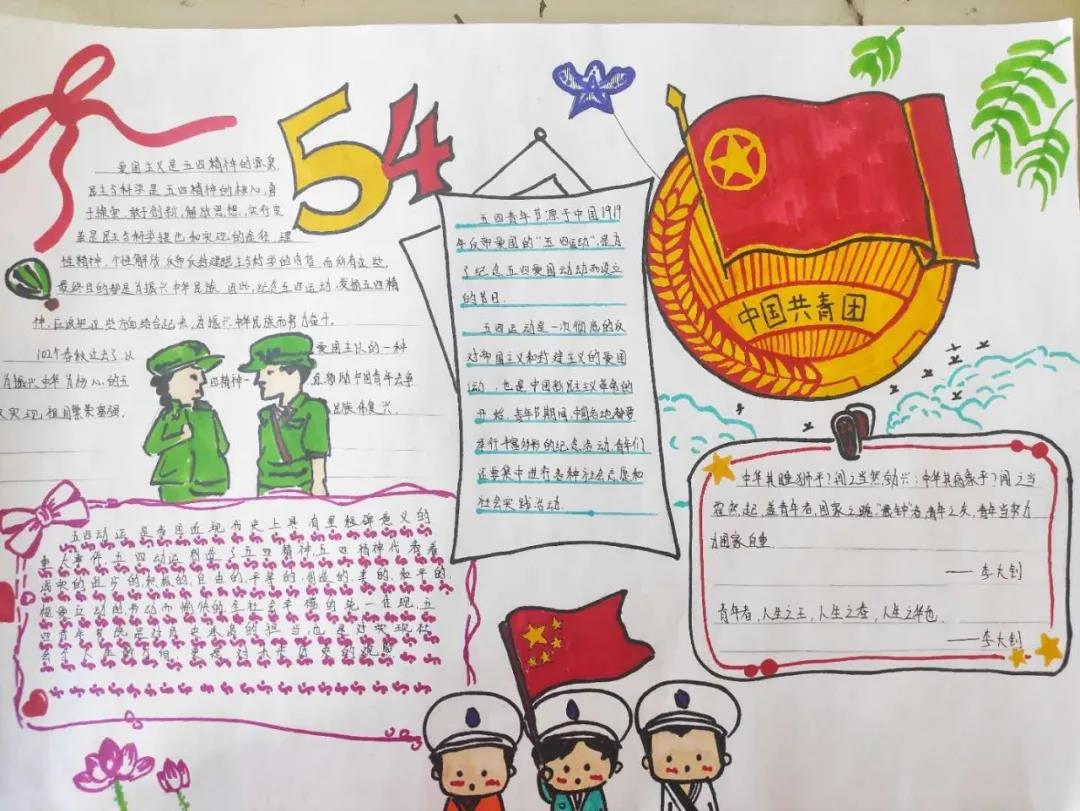 54
爱国主义是五四精神的源泉
民主与科学是五四精神的核心,勇
于探索、敢于创新、解放思想、实行变
革是民主与科学提出和实现的途径,理
性精神、个性解放、反帝反封建是民主与科学的内容,而所有这些
最终目的都是为振兴中华民族.因此,纪念五四运动、发扬五四精
神,应该把这些方面结合起来,为振兴中华民族而努力奋斗。
102个春秋过去了,以
爱国主义的一种
为振兴中华为核心的五
四精神一
直激励中国青年去争
取实现祖国繁荣富强,
民族伟复兴.
五四青年节源于中国1919
年反帝爱国的“五四运动”,是为
了纪念五四爱国运动而设立
的节日.
五四运动是一次彻底的反
对帝国主义和封建主义的爱国
运动,也是中国新民主主义革命的
开始,青年节期间,中国各地都要
举行丰富多彩的纪念活动,青年们
还要集中进行各种社会志愿和
社会实践活动.
中国共青团
中华其睡狮乎?闻之当勃兴:中华其病象乎?闻之当
奋然起,盖青年者,国家之魂.
青年当努力
为国家自重.
——李大钊
青年者,人生之王,人生之春,人生之华也.
——李大钊
五四动运是我国近现代史上具有里程碑意义的
重大事件,五四动运创造了五四精神,五四精神代表着
诚实的进步的积极的,自由的,平等的,创造的,美的,和平的,
相爱互动的劳动而愉快的,全社会幸福的
五
四青年节既是对历史
的担当,也是对实现社